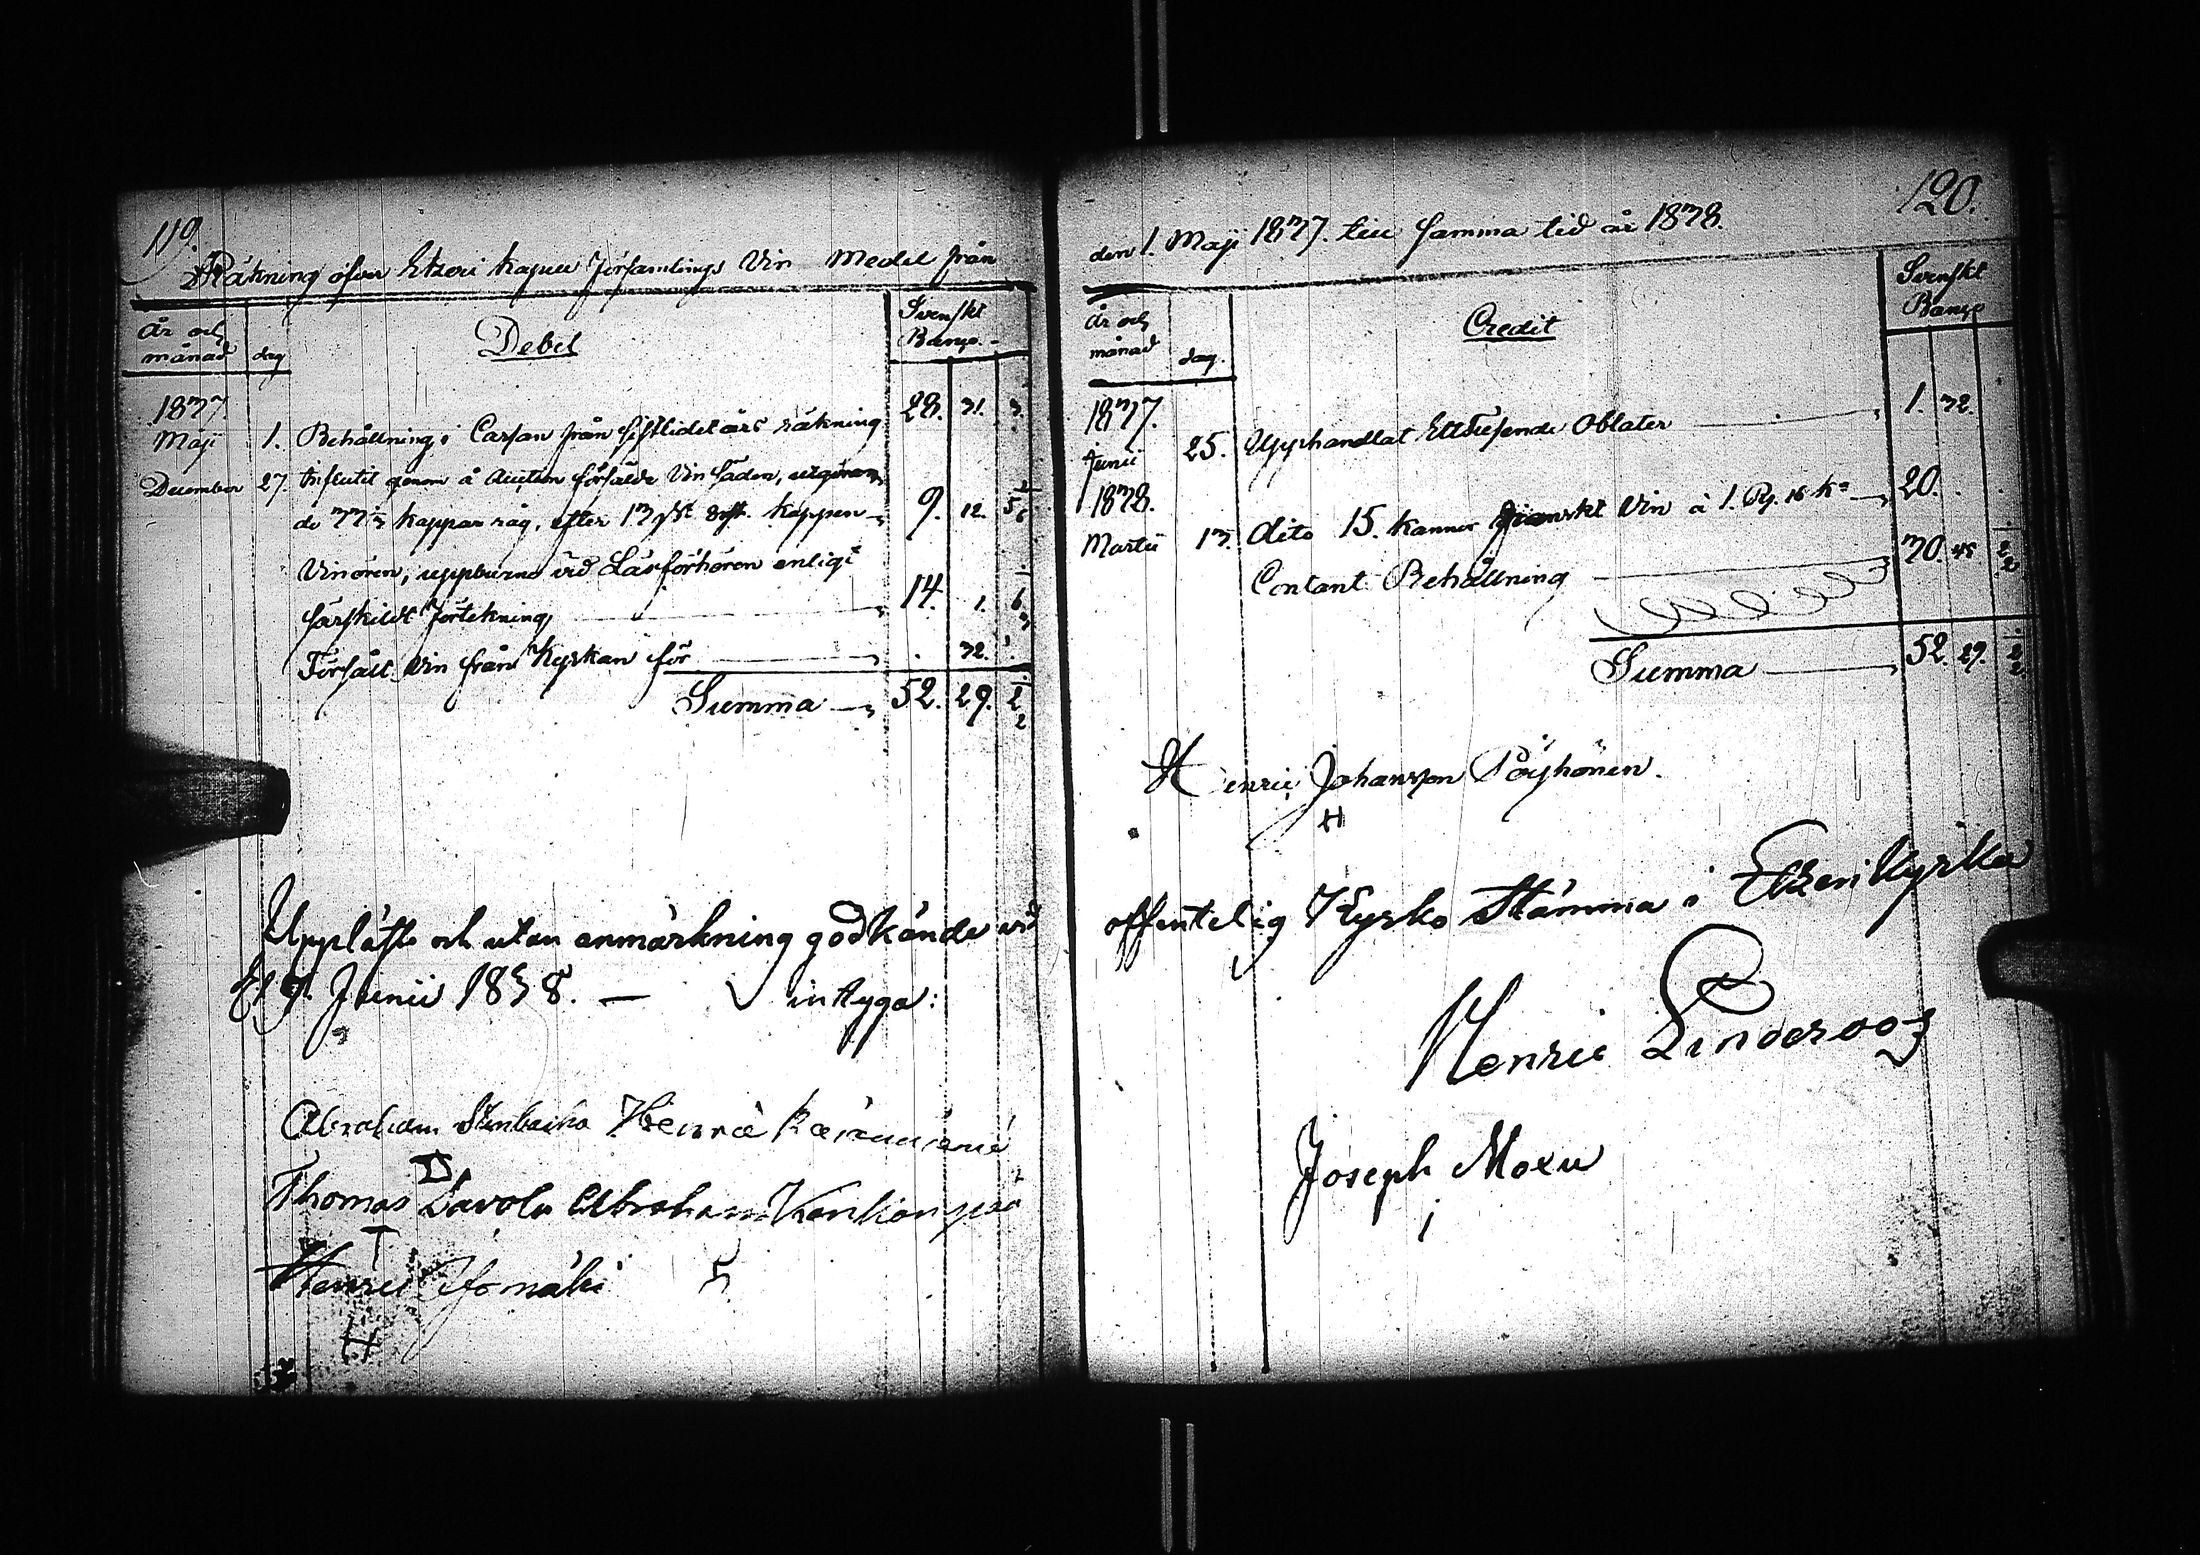 119.
Räkning öfver Etseri Kapell Församlings Vin Medel från
År och månad
dag
Debet
Svenskt Banco.
1837
Maji 1. Behållning i Cassan från sistlidet års räkning 28. 31. 3.
December 27. Influtit genom å Auction försålde Vin Säden, utgöran-
de 33 1/3 kappar råg, efter 13 s. kappen 9. 12. 5 1/6
Vinören, uppburne vid Läseförhören enligt
särskildt Förtekning 14. 1.
Försålt Vin från Kyrkan för . 32. .
Summa 52. 29. 1/2
Uppläste och utan anmärkning godkände vid
Junii 1838. — intyga:
Abraham
Thomas Savola Abraham
T
Henric
H
120.
den 1. Maji 1837. till samma tid år 1838.
År och månad
dag.
Credit
Svenskt Banco
1837.
Junii 25. Upphandlat Ettusende Oblater 1. 32.
1838.
Martii 13. dito 15. kannor franskt Vin à 1. Rg. 16 k 20. . .
Contant Behållning 30. 45. 1/2
Summa 52. 29. 1/2
Henric Johansson Pöyhönen.
H
offentelig Kyrko Stämma i Etseri Kyrka
Henric Linderoos
Joseph Moxu